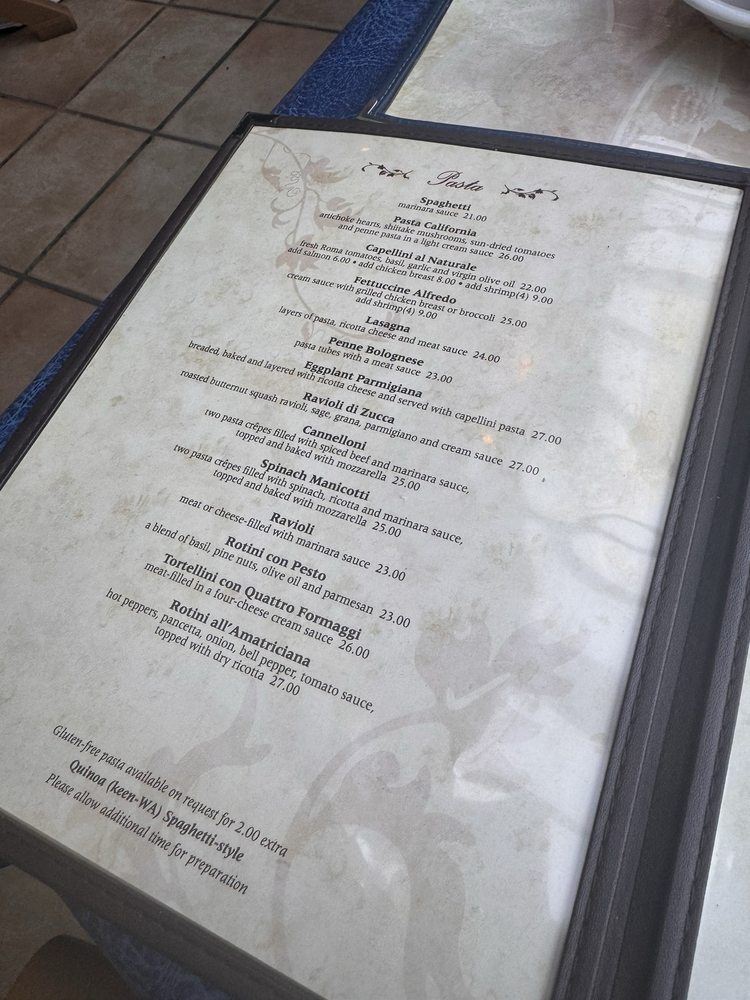 Pasta
Spaghetti
marinara sauce 21.00
Pasta California
artichoke hearts, shiitake mushrooms, sun-dried tomatoes
and penne pasta in a light cream sauce 26.00
Capellini al Naturale
fresh Roma tomatoes, basil, garlic and virgin olive oil 22.00
add salmon 6.00 • add chicken breast 8.00 • add shrimp(4) 9.00
Fettuccine Alfredo
cream sauce with grilled chicken breast or broccoli 25.00
add shrimp(4) 9.00
Lasagna
layers of pasta, ricotta cheese and meat sauce 24.00
Penne Bolognese
pasta tubes with a meat sauce 23.00
Eggplant Parmigiana
breaded, baked and layered with ricotta cheese and served with capellini pasta 27.00
Ravioli di Zucca
roasted butternut squash ravioli, sage, grana, parmigiano and cream sauce 27.00
Cannelloni
two pasta crêpes filled with spiced beef and marinara sauce,
topped and baked with mozzarella 25.00
Spinach Manicotti
two pasta crêpes filled with spinach, ricotta and marinara sauce,
topped and baked with mozzarella 25.00
Ravioli
meat or cheese-filled with marinara sauce 23.00
Rotini con Pesto
a blend of basil, pine nuts, olive oil and parmesan 23.00
Tortellini con Quattro Formaggi
meat-filled in a four-cheese cream sauce 26.00
Rotini all'Amatriciana
hot peppers, pancetta, onion, bell pepper, tomato sauce,
topped with dry ricotta 27.00
Gluten-free pasta available on request for 2.00 extra
Quinoa (keen-WA) Spaghetti-style
Please allow additional time for preparation